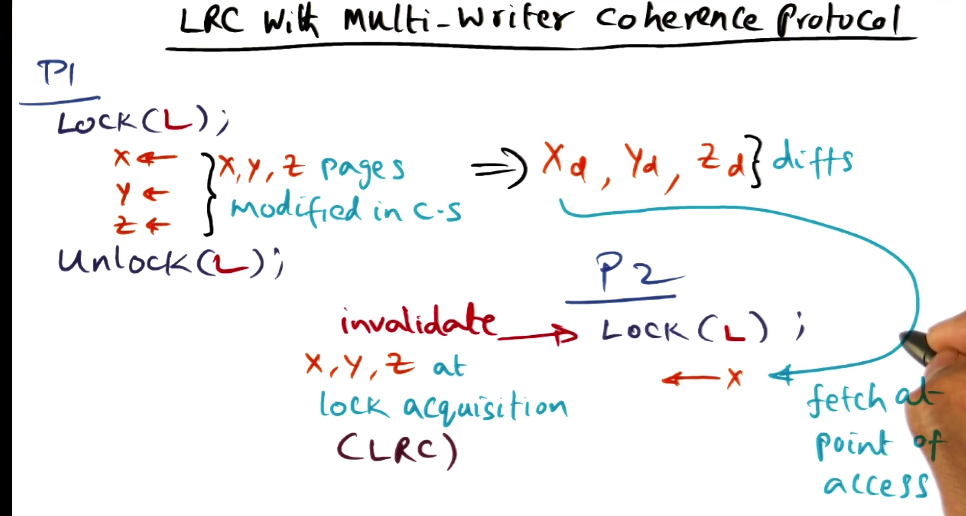 LRC with Multi-Writer Coherence Protocol
P1
Lock(L);
x ←
y ←
z ←
} X, Y, Z pages
modified in C-S
⇒ Xd, Yd, Zd } diffs
Unlock(L);
P2
invalidate → Lock(L);
X, Y, Z at
lock acquisition
(LRC)
← x
fetch at
point of
access